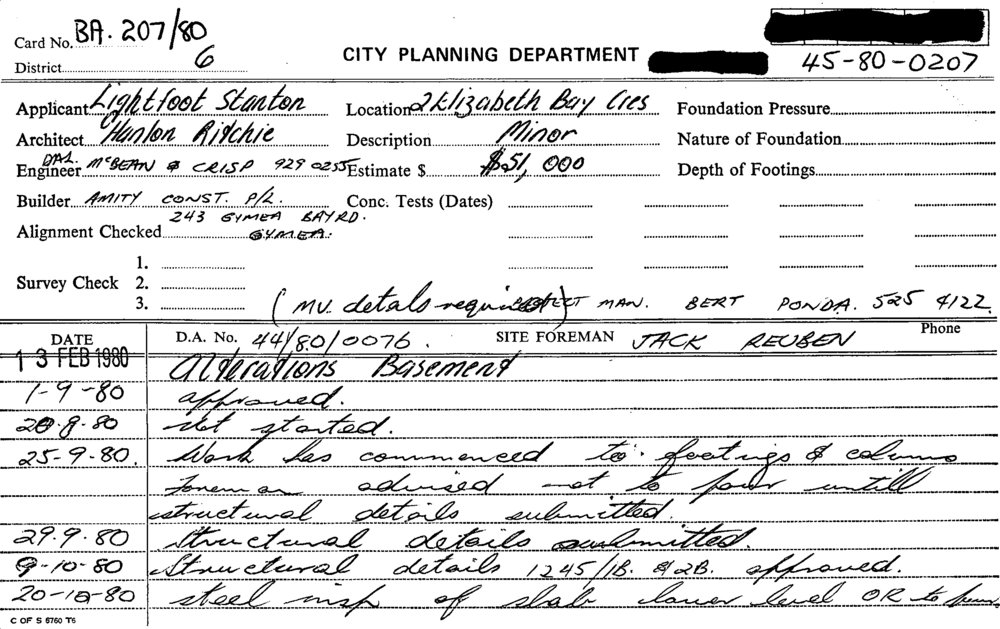 Card No. BA. 207/80
District 6
CITY PLANNING DEPARTMENT
45-80-0207
Applicant Lightfoot Stanton
Location 2 Elizabeth Bay Cres
Foundation Pressure
Architect Hanlon Ritchie
Description Minor
Nature of Foundation
Engineer DAL. McBEAN & CRISP 929 0255
Estimate $ $51,000
Depth of Footings
Builder AMITY CONST. P/L.
Conc. Tests (Dates)
243 GYMEA BAY RD.
Alignment Checked GYMEA.
1.
Survey Check 2.
3.
(MV. detals required) MAN. BERT PONDA. 525 4122
DATE D.A. No. 44/80/0076. SITE FOREMAN JACK REUBEN Phone
13 FEB 1980 Alterations Basement
1-9-80 approved.
20.8.80 Not started.
25-9-80. Work has commenced to footings & columns
Foreman advised not to pour untill
structural details submitted.
29.9.80 Structural details submitted.
9-10-80 Structural details 1245/1B. & 2B. approved.
20-10-80 steel insp of slab lower level OR to pour
C OF S 6760 T6